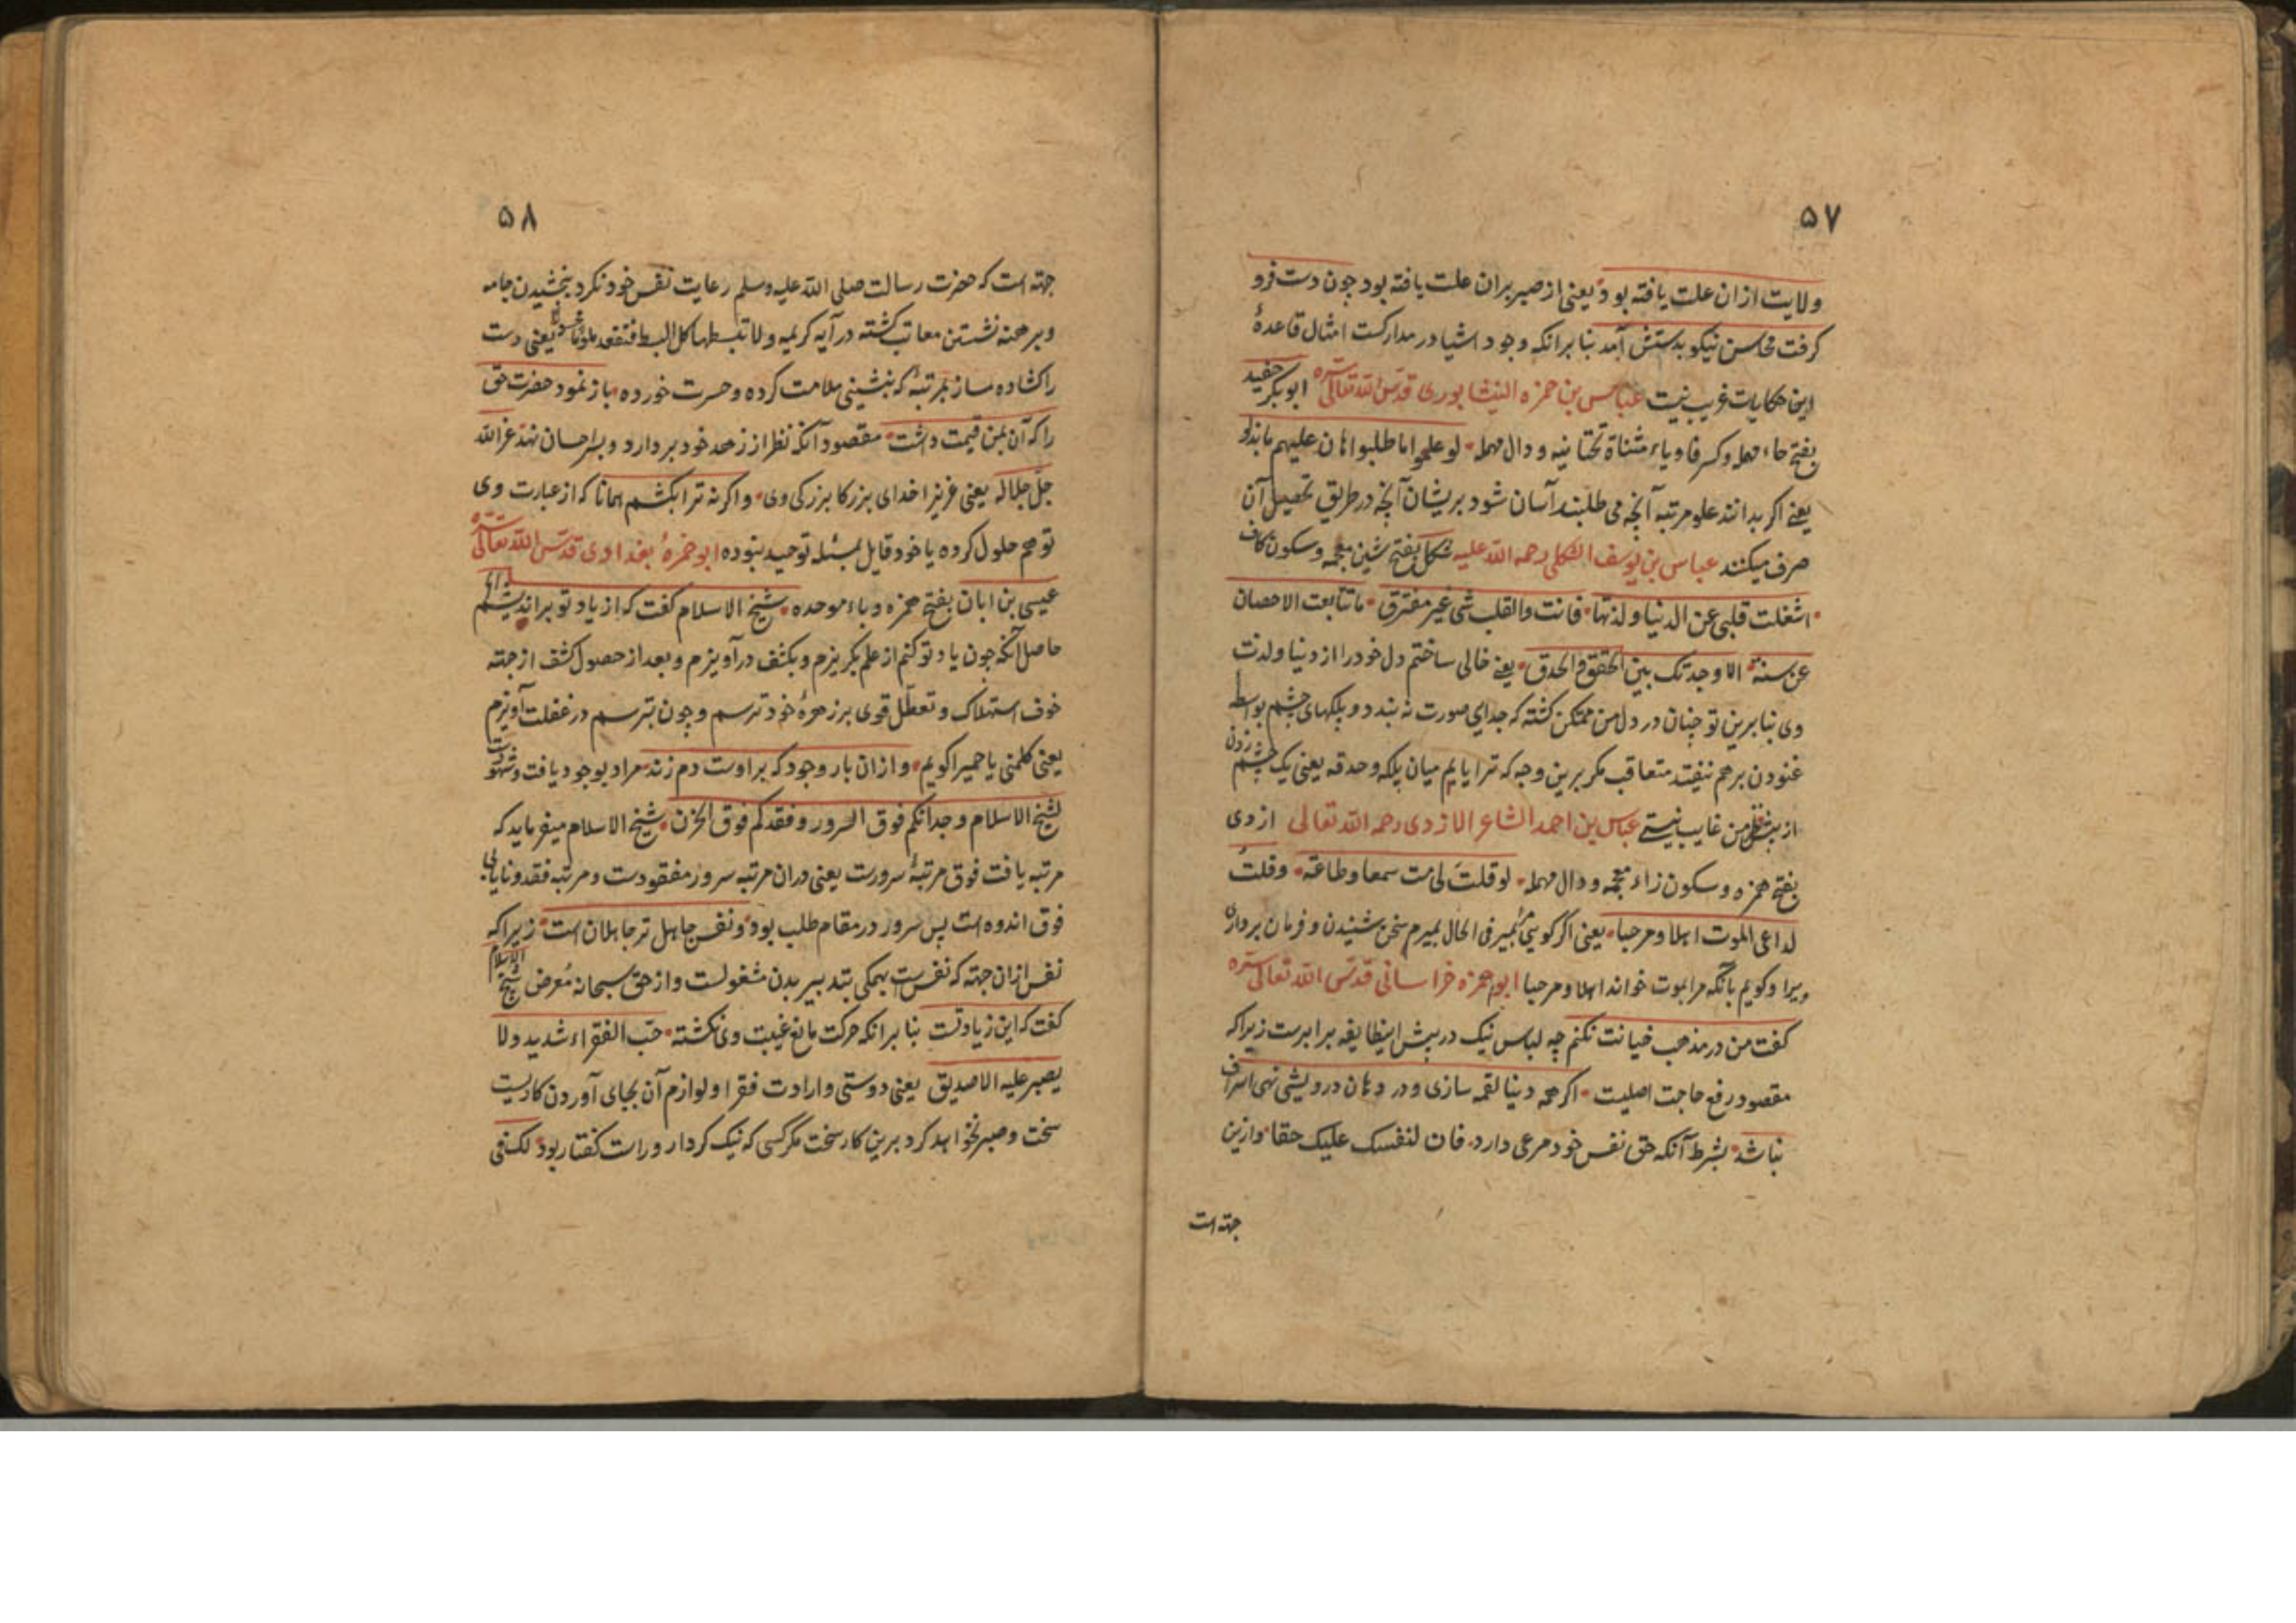 ۵۷
ولایت ازان علت یافته بود یعنی از صبر بران علت یافته بود چون دست فرو
کرفت محاسن نیکو بدستش آمد بنا برانکه وجود اشیا در مدارکست امثال قاعدهٔ
این حکایات غریب نیست عباس بن حمزه النیشابوری قدس الله تعالی سره ابو بکر حفید
بفتح حاء مهمله وکسر فا ویاء مثناة تحتانیه و دال مهمله لو علموا ما طلبوا هان علیهم ما بذلوا
یعنے اکر بدانند علو مرتبه آنچه می طلبند آسان شود بریشان آنچه در طریق تحصیل آن
صرف میکنند عباس بن یوسف الشکلی رحمه الله علیه شکل بفتح شین معجمه وسکون کاف
اشغلت قلبی عن الدنیا ولذتها فانت والقلب شی غیر مفترق ما تتابعت الاحصان
عن سنة الا وجدتک بین الحقق والحدق یعنے خالی ساختم دل خود را از دنیا ولذت
وی بنا برین تو چنان در دل من متمکن کشته که جدای صورت نه بندد و پلکهای چشم بواسطه
غنودن برهم نیفتد متعاقب مکر برین وجه که ترا یابم میان پلکه وحدقه یعنی یک چشم زدن
از پیش نظر من غایب نیستے عباس بن احمد الشاعر الازدی رحمه الله تعالی ازدی
بفتح همزه وسکون زاء معجمه و دال مهمله لو قلتَ لی مت سمعا وطاعة وقلتُ
لداعی الموت اهلا ومرحبا یعنی اکر کویی بمیر فی الحال بمیرم سخن شنیدن و فرمان برداری
ویرا وکویم بآنکه مرا بموت خواند اهلا ومرحبا ابو حمزه خراسانی قدس الله تعالی سره
کفت من در مذهب خیانت نکنم چه لباس نیک در پیش اینطایفه برابرست زیرا که
مقصود رفع حاجت اصلیت اکر همه دنیا لقمه سازی و در دهان درویشی نهی اسراف
نباشد بشرط آنکه حق نفس خود مرعی دارد فان لنفسک علیک حقا وازین
جهته است
۵۸
جهته است که حضرت رسالت صلی الله علیه وسلم رعایت نفس خود نکرد ببخشیدن جامه
وبرهنه نشستن معاتب کشته در آیه کریمه ولا تبسطها کل البسط فتقعد ملوما محسورا یعنی دست
را کشاده مساز بمرتبهٔ که بنشینی ملامت کرده وحسرت خورده باز نمود حضرت حق
را که آن بمن قیمت داشت مقصود آنکه نظر از زهد خود بردارد و بسر احسان نهد عز الله
جلّ جلاله یعنی عزیزا خدای بزرکا بزرکی وی واکر نه ترا بکشم همانا که از عبارت وی
توهم حلول کرده یا خود قایل بمسئله توحید نبوده ابو حمزهٔ بغدادی قدس الله تعالی سره
عیسی بن ابان بفتح همزه و باء موحده شیخ الاسلام کفت که از یاد تو براندیشم
حاصل آنکه چون یاد تو کنم از علم بکریزم و بکشف درآویزم و بعد از حصول کشف از جهته
خوف استهلاک و تعطّل قوی بر زهرهٔ خود ترسم و چون بترسم در غفلت آویزم
یعنی کلمنی یا حمیرا کویم وازان بار وجود که براوست دم زند مراد بوجود یافت وشهودست
لشیخ الاسلام وجدانکم فوق السرور وفقدکم فوق الحزن شیخ الاسلام میفرماید که
مرتبه یافت فوق مرتبهٔ سرورت یعنی دران مرتبه سرور مفقودست ومرتبه فقد ونایابی
فوق اندوه است پس سرور در مقام طلب بود ونفس جاهل تر جاهلان است زیرا که
نفس ازان جهته که نفسست بهمکی بتدبیر بدن مشغولست واز حق سبحانه مُعرض شیخ الاسلام
کفت که این زیادتست بنا برانکه حرکت مانع غیبت وی نکشته حبّ الفقراء شدید ولا
یصبر علیه الا صدیق یعنی دوستی وارادت فقرا ولوازم آن بجای آوردن کاریست
سخت وصبر نخواهد کرد برین کار سخت مکر کسی که نیک کردار وراست کفتار بود لکنی